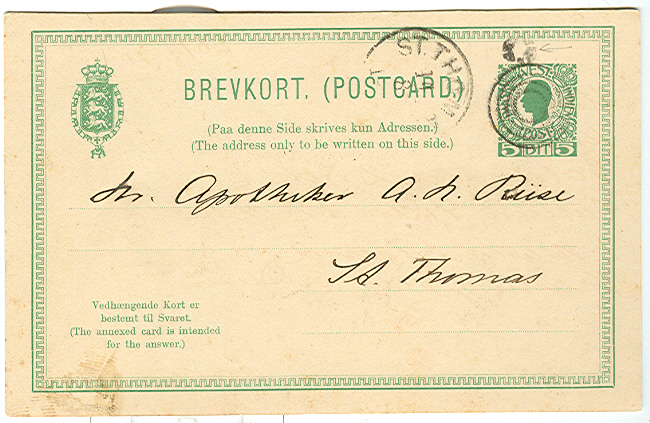 BREVKORT. (POSTCARD.)
(Paa denne Side skrives kun Adressen.)
(The address only to be written on this side.)
ST. THOM
VEST
POST
5 BIT 5
Hr. Apotheker A. H. Riise
St. Thomas
Vedhængende Kort er
bestemt til Svaret.
(The annexed card is intended
for the answer.)